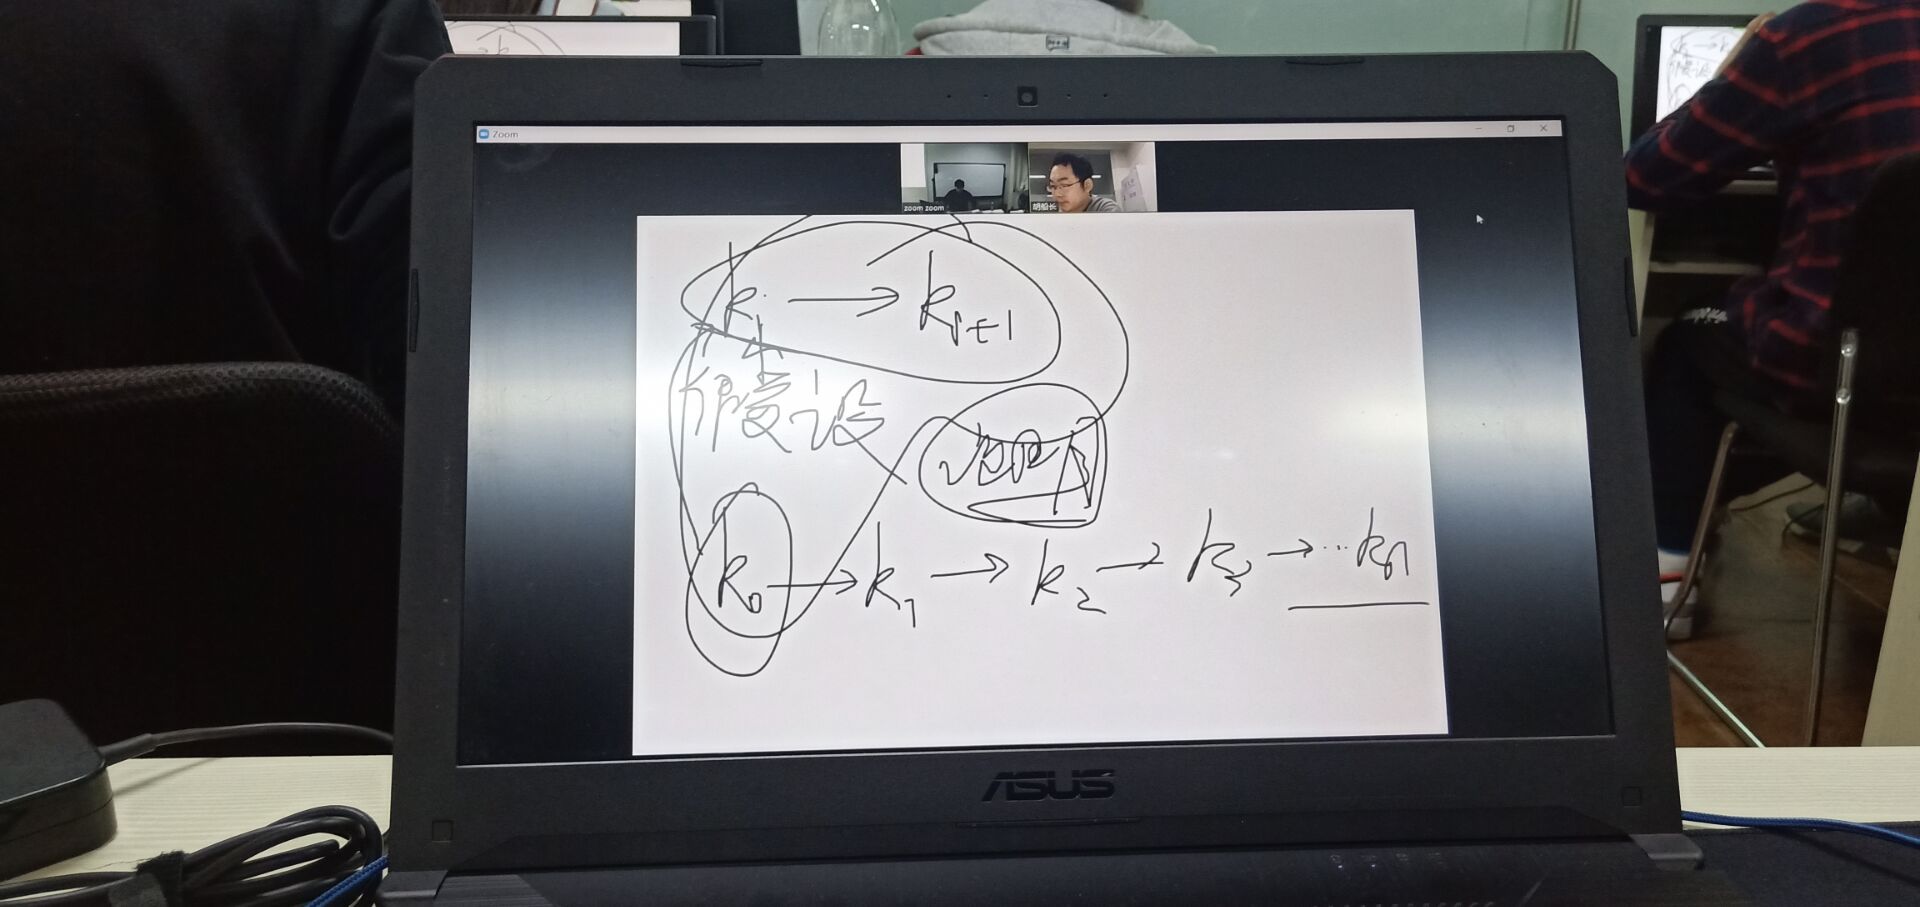 Zoom
zoom zoom
胡船长
kᵢ → kᵢ₊₁
假设
证明
k₀ → k₁ → k₂ → k₃ → ... kₙ
ASUS